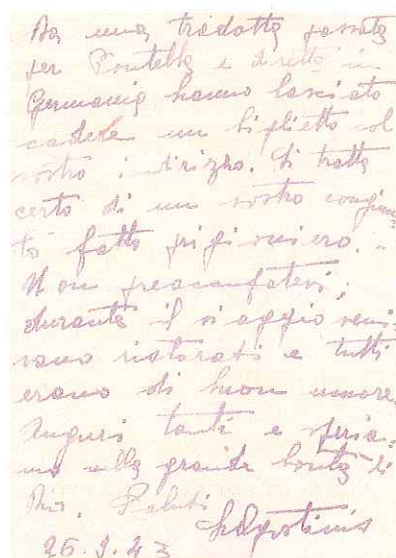 Da una tradotta passata
per Pontebba e diretta in
Germania hanno lasciato
cadere un biglietto col
vostro indirizzo. Si tratta
certo di un vostro congiun
to fatto prigioniero. -
Non preoccupatevi,
durante il viaggio veni-
vano ristorati e tutti
erano di buon umore.
Auguri tanti e speria-
mo nella grande bontà di
Dio. Saluti
26.9.43